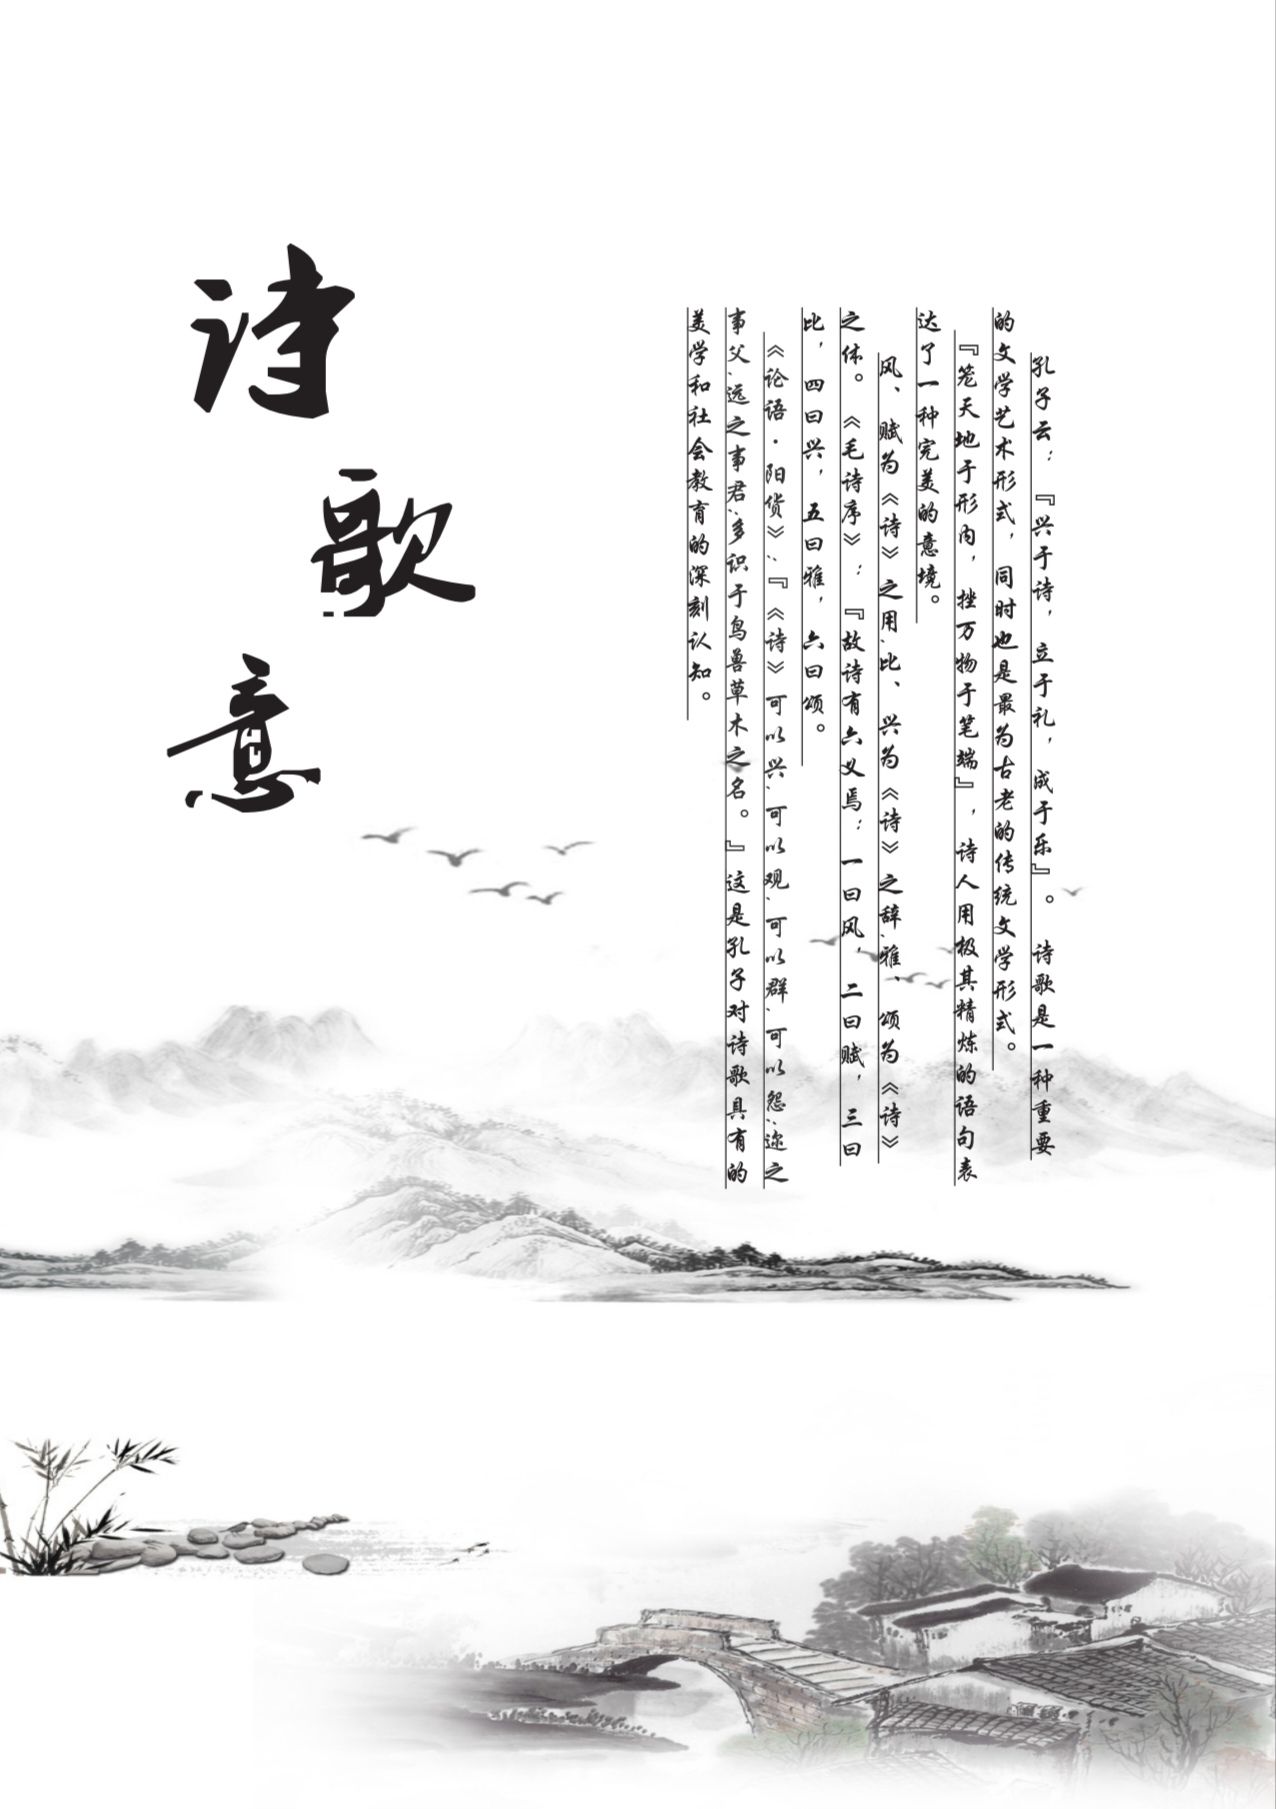 诗歌意
孔子云：『兴于诗，立于礼，成于乐』。诗歌是一种重要
的文学艺术形式，同时也是最为古老的传统文学形式。
『笼天地于形内，挫万物于笔端』，诗人用极其精炼的语句表
达了一种完美的意境。
风、赋为《诗》之用，比、兴为《诗》之辞，雅、颂为《诗》
之体。《毛诗序》：『故诗有六义焉：一曰风，二曰赋，三曰
比，四曰兴，五曰雅，六曰颂。
《论语·阳货》：『《诗》可以兴，可以观，可以群，可以怨；迩之
事父，远之事君；多识于鸟兽草木之名。』这是孔子对诗歌具有的
美学和社会教育的深刻认知。